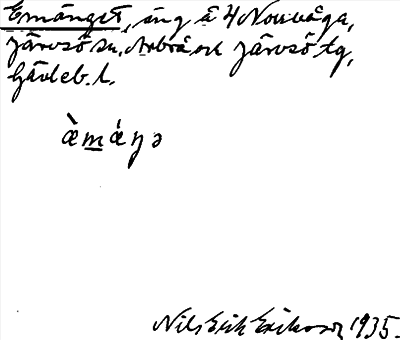 Emänget, äng å 4 Norvåga,
Järvsö sn, Arbrå ock Järvsö tg,
Gävleb. l.
æ̀mǽŋə
Nils Erik Eriksson 1935.